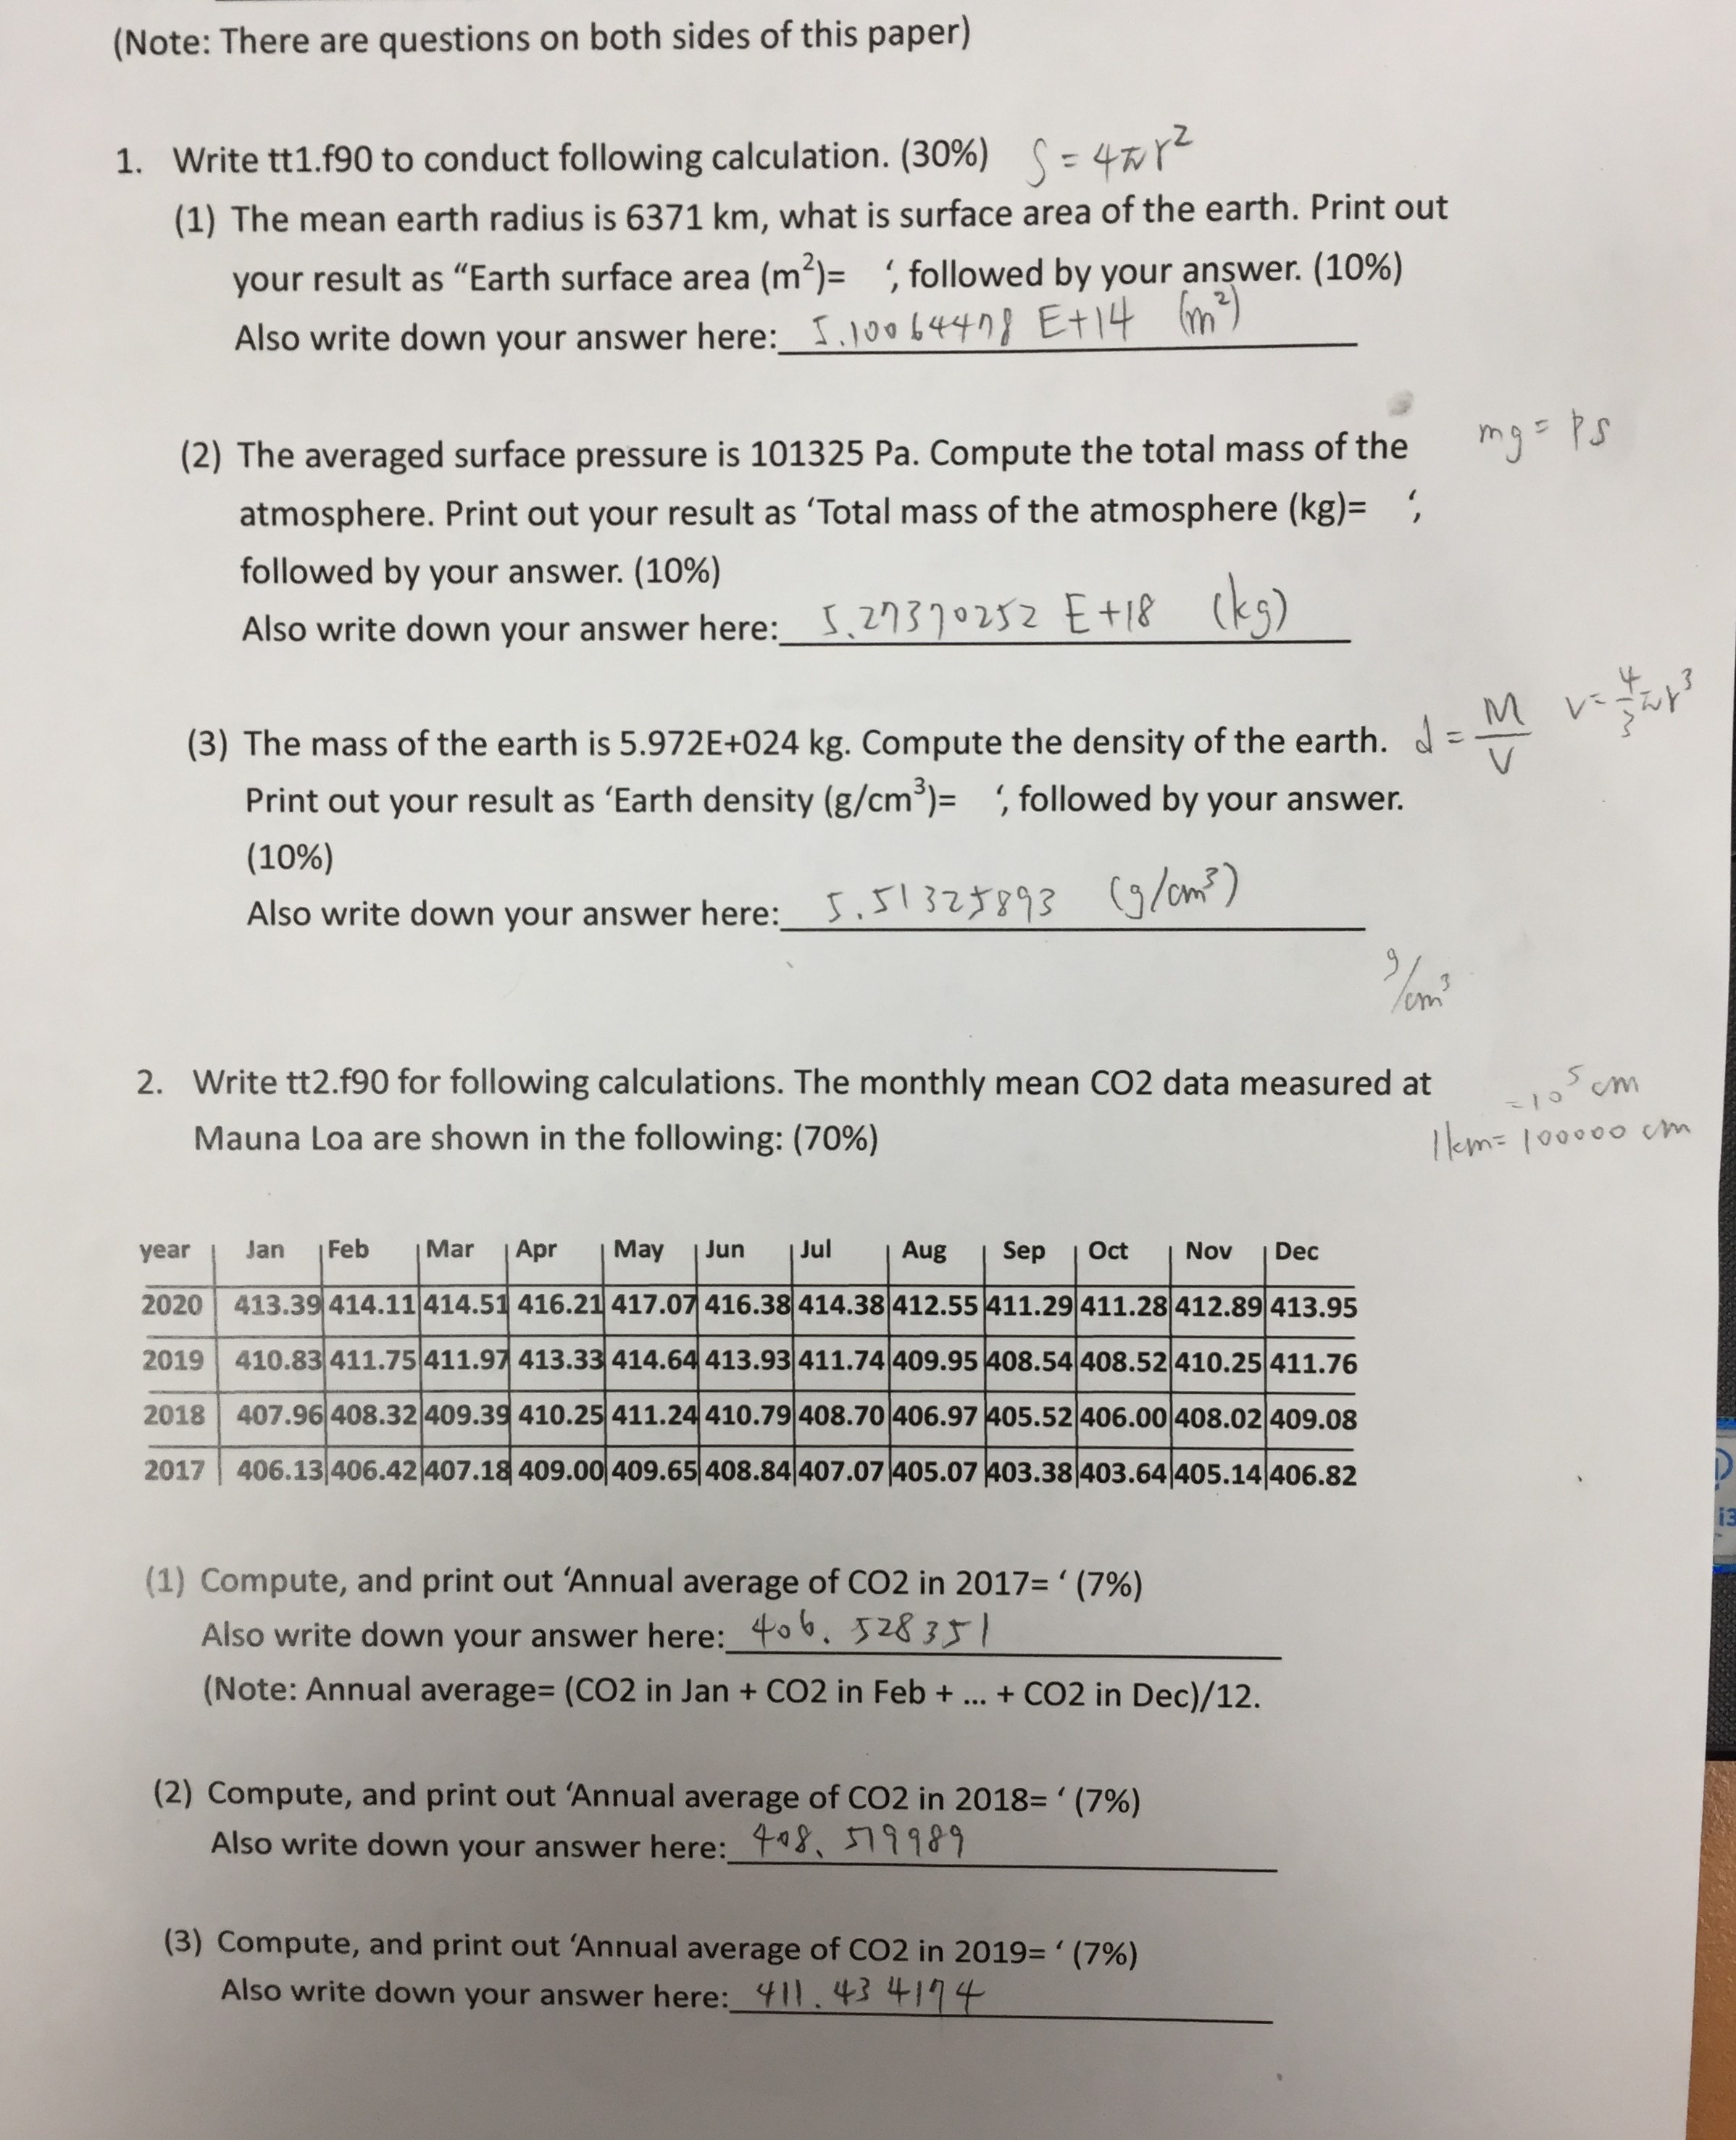 (Note: There are questions on both sides of this paper)
1. Write tt1.f90 to conduct following calculation. (30%) S = 4πr²
(1) The mean earth radius is 6371 km, what is surface area of the earth. Print out
your result as “Earth surface area (m²)= ‘, followed by your answer. (10%)
Also write down your answer here: 5.10064478 E+14 (m²)
(2) The averaged surface pressure is 101325 Pa. Compute the total mass of the
mg = PS
atmosphere. Print out your result as ‘Total mass of the atmosphere (kg)= ‘,
followed by your answer. (10%)
Also write down your answer here: 5.27370252 E+18 (kg)
(3) The mass of the earth is 5.972E+024 kg. Compute the density of the earth. d = M/V V = 4/3 πr³
Print out your result as ‘Earth density (g/cm³)= ‘, followed by your answer.
(10%)
Also write down your answer here: 5.51325893 (g/cm³)
g/cm³
2. Write tt2.f90 for following calculations. The monthly mean CO2 data measured at
=10⁵ cm
Mauna Loa are shown in the following: (70%)
1km= 100000 cm
year Jan Feb Mar Apr May Jun Jul Aug Sep Oct Nov Dec
2020 413.39 414.11 414.51 416.21 417.07 416.38 414.38 412.55 411.29 411.28 412.89 413.95
2019 410.83 411.75 411.97 413.33 414.64 413.93 411.74 409.95 408.54 408.52 410.25 411.76
2018 407.96 408.32 409.39 410.25 411.24 410.79 408.70 406.97 405.52 406.00 408.02 409.08
2017 406.13 406.42 407.18 409.00 409.65 408.84 407.07 405.07 403.38 403.64 405.14 406.82
i3
(1) Compute, and print out ‘Annual average of CO2 in 2017= ‘ (7%)
Also write down your answer here: 406.528351
(Note: Annual average= (CO2 in Jan + CO2 in Feb + ... + CO2 in Dec)/12.
(2) Compute, and print out ‘Annual average of CO2 in 2018= ‘ (7%)
Also write down your answer here: 408.519989
(3) Compute, and print out ‘Annual average of CO2 in 2019= ‘ (7%)
Also write down your answer here: 411.434174